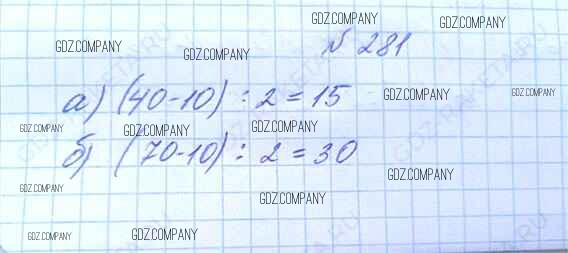 № 281
а) (40-10) : 2 = 15
б) (70-10) : 2 = 30
GDZ.COMPANY
GDZ.COMPANY
GDZ.COMPANY
GDZ.COMPANY
GDZ.COMPANY
GDZ.COMPANY
GDZ.COMPANY
GDZ.COMPANY
GDZ.COMPANY
GDZ.COMPANY
GDZ.COMPANY
GDZ.COMPANY
GDZ.COMPANY
GDZ.COMPANY
GDZ-RAKETA.RU